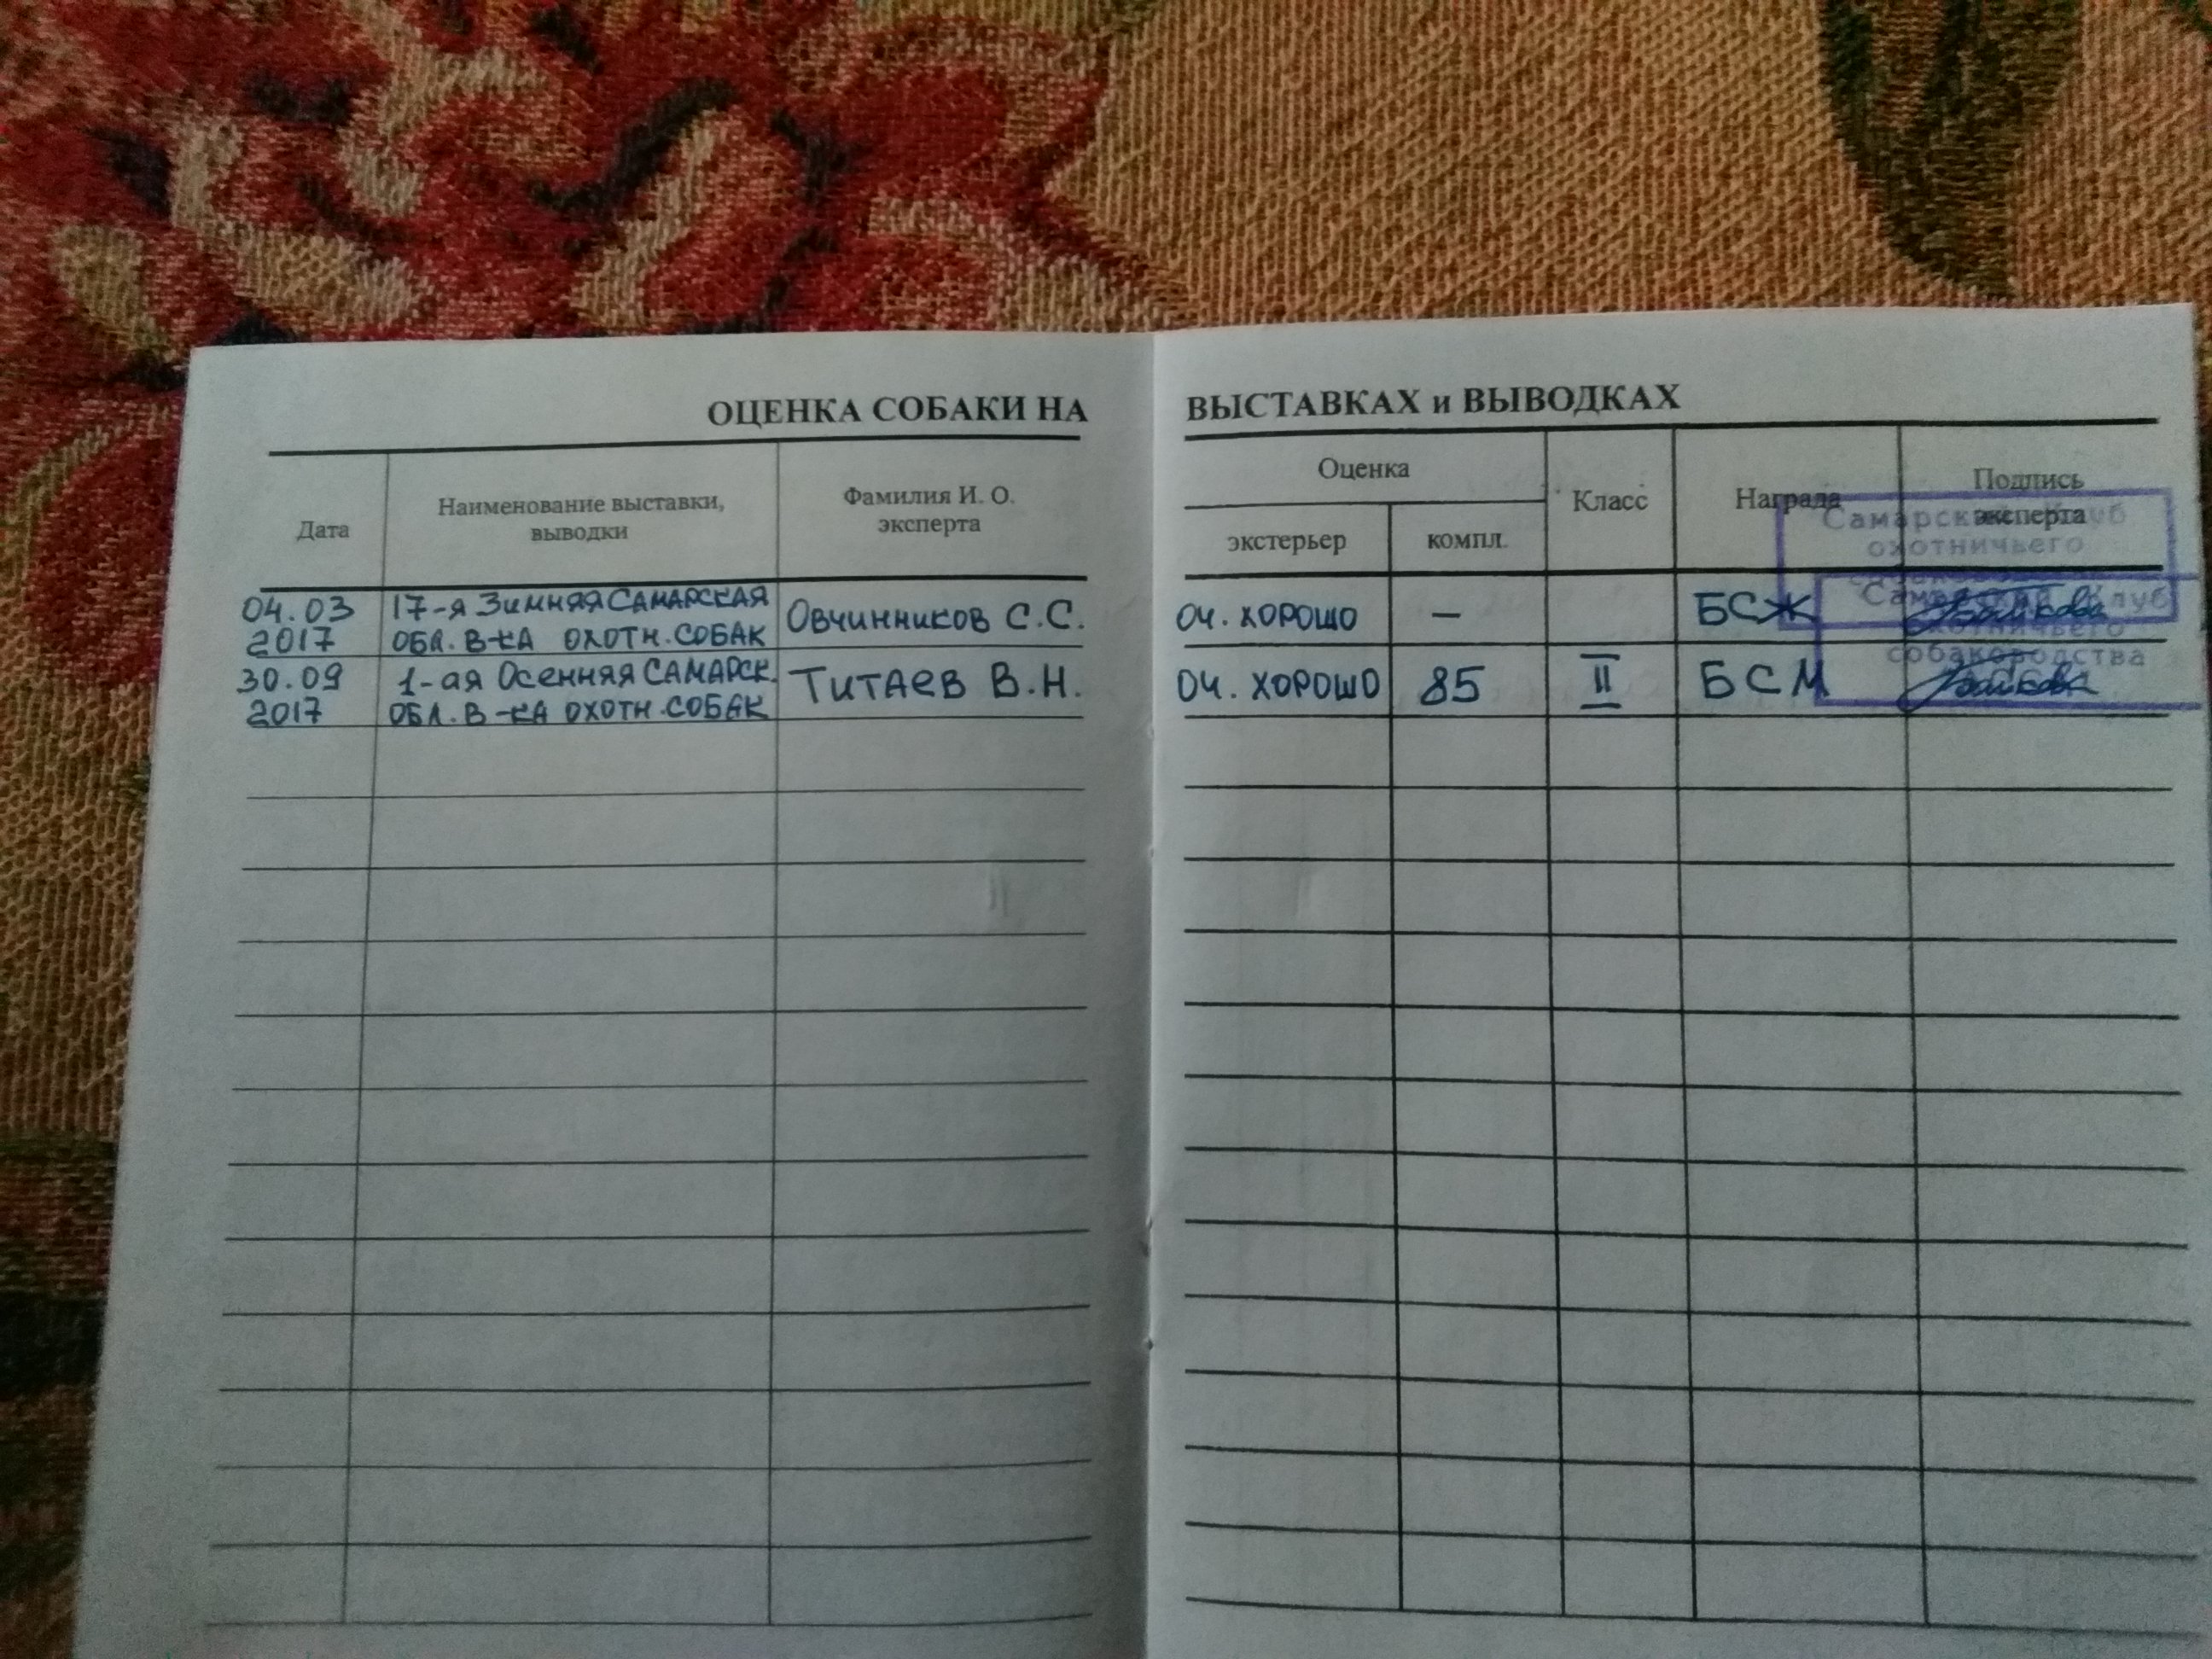 ОЦЕНКА СОБАКИ НА ВЫСТАВКАХ и ВЫВОДКАХ
Дата
Наименование выставки,
выводки
Фамилия И. О.
эксперта
Оценка
экстерьер
компл.
Класс
Награда
Подпись
эксперта
Самарский Клуб
охотничьего
04.03
2017
17-я Зимняя САМАРСКАЯ
ОБЛ. В-КА ОХОТН. СОБАК
Овчинников С.С.
ОЧ. ХОРОШО
—
БСЖ
Самарский Клуб
охотничьего
собаководства
30.09
2017
1-ая Осенняя САМАРСК.
ОБЛ. В-КА ОХОТН. СОБАК
Титаев В.Н.
ОЧ. ХОРОШО
85
II
БСМ